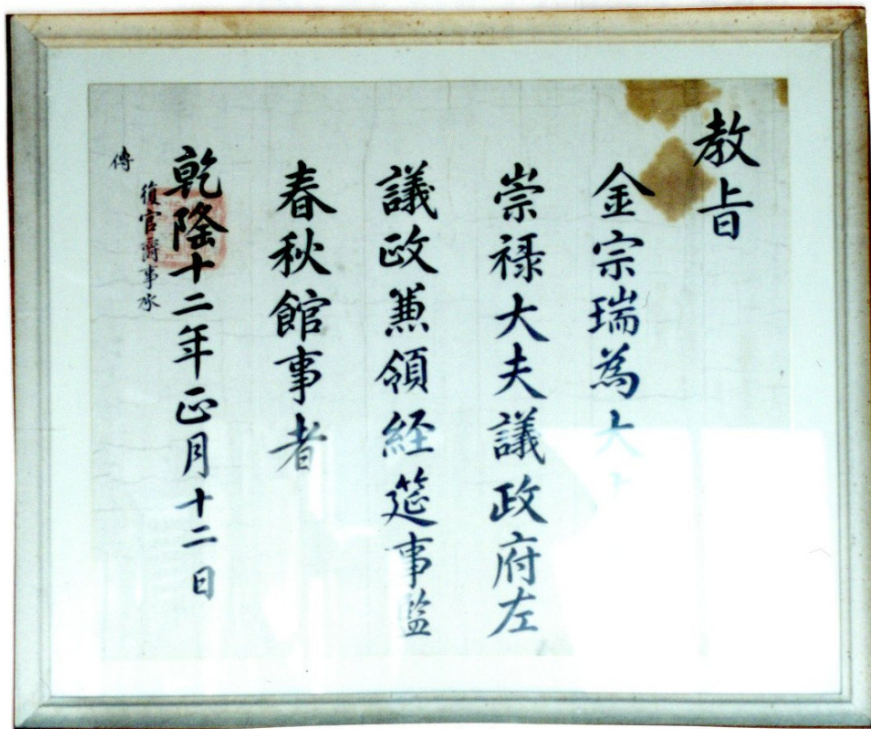 教旨
金宗瑞為大
崇禄大夫議政府左
議政蕙領経筵事監
春秋館事者
乾隆十二年正月十二日
復官爵事承
傳